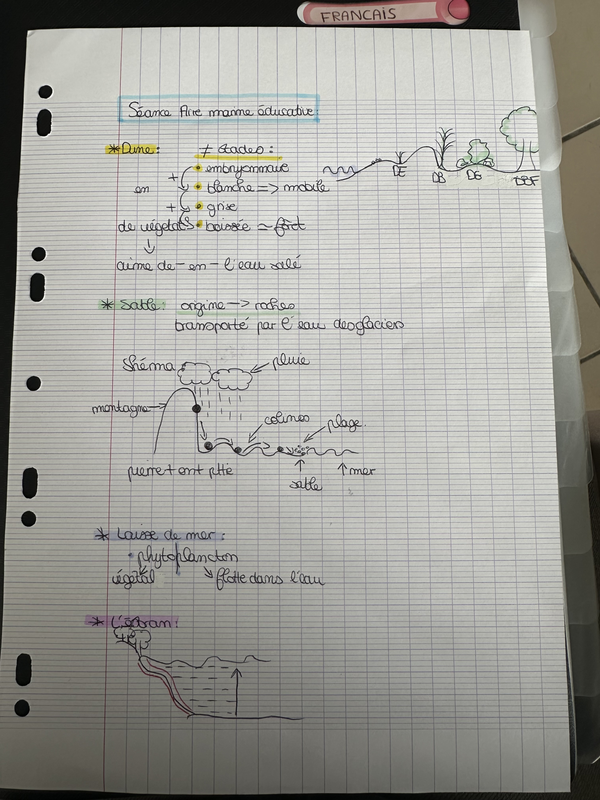 FRANCAIS
Séance Aire marine éducative:
* Dune: ≠ stades:
• embryonnaire
+
en • blanche => mobile
+ • grise
de végétals • boisée = forêt
DE DB DG DBF
aime de-en-l'eau salé
* Sable: origine -> roches
transporté par l'eau des glaciers
Shéma pluie
montagne
colines
plage.
pierre + en + ptte
sable mer
* Laisse de mer:
• phytoplancton
végétal flotte dans l'eau
* L'estran: